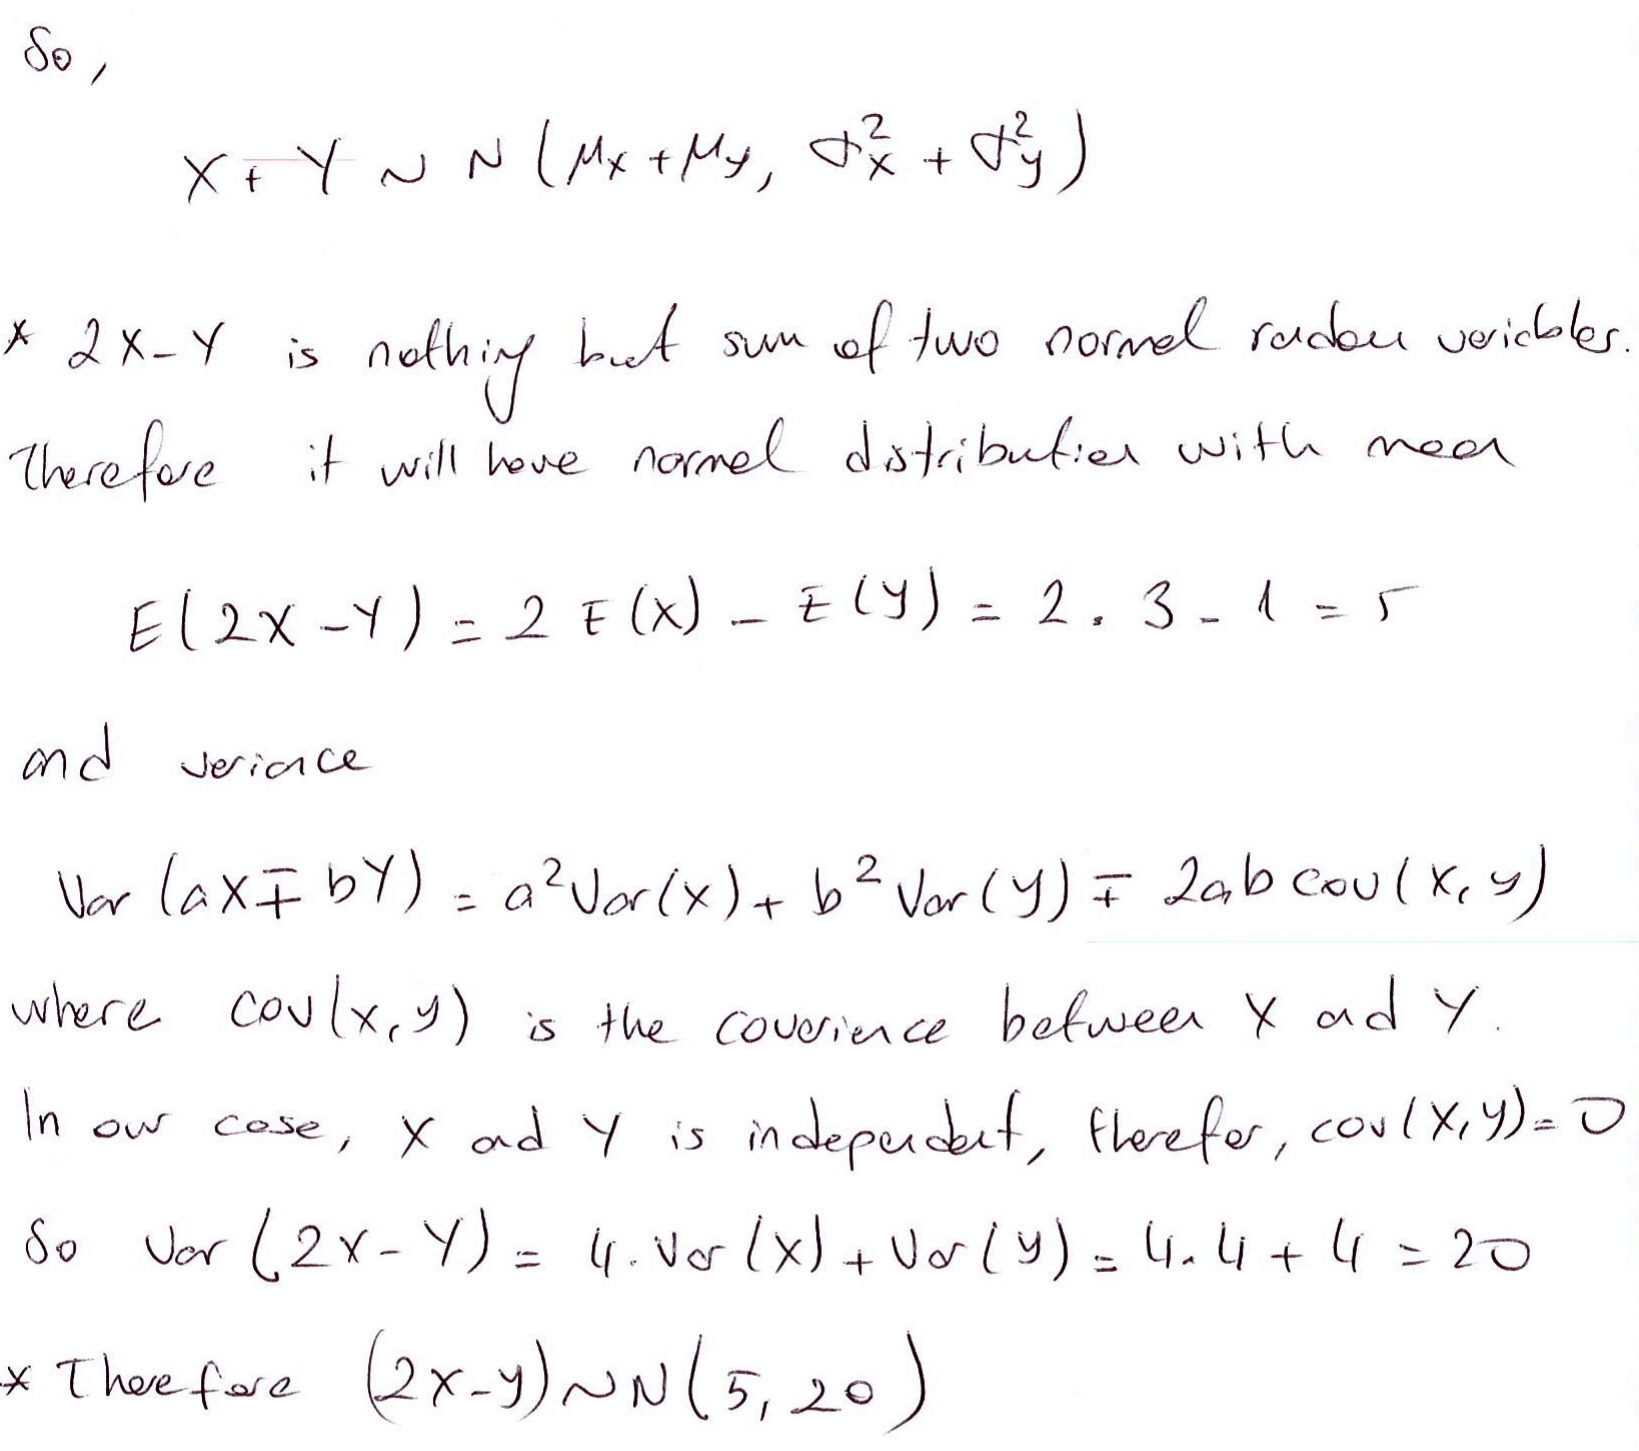 So,
X + Y ~ N(μx + μy, σ²x + σ²y)
* 2X - Y is nothing but sum of two normal random variables.
Therefore it will have normal distribution with mean
E(2X - Y) = 2 E(X) - E(Y) = 2 . 3 - 1 = 5
and variance
Var (aX ∓ bY) = a² Var(X) + b² Var(Y) ∓ 2ab cov(X, Y)
where cov(x, y) is the covarience between X and Y.
In our case, X and Y is independent, therefor, cov(X, Y) = 0
So Var (2X - Y) = 4 . Var (X) + Var(Y) = 4 . 4 + 4 = 20
* Therefore (2X - Y) ~ N(5, 20)